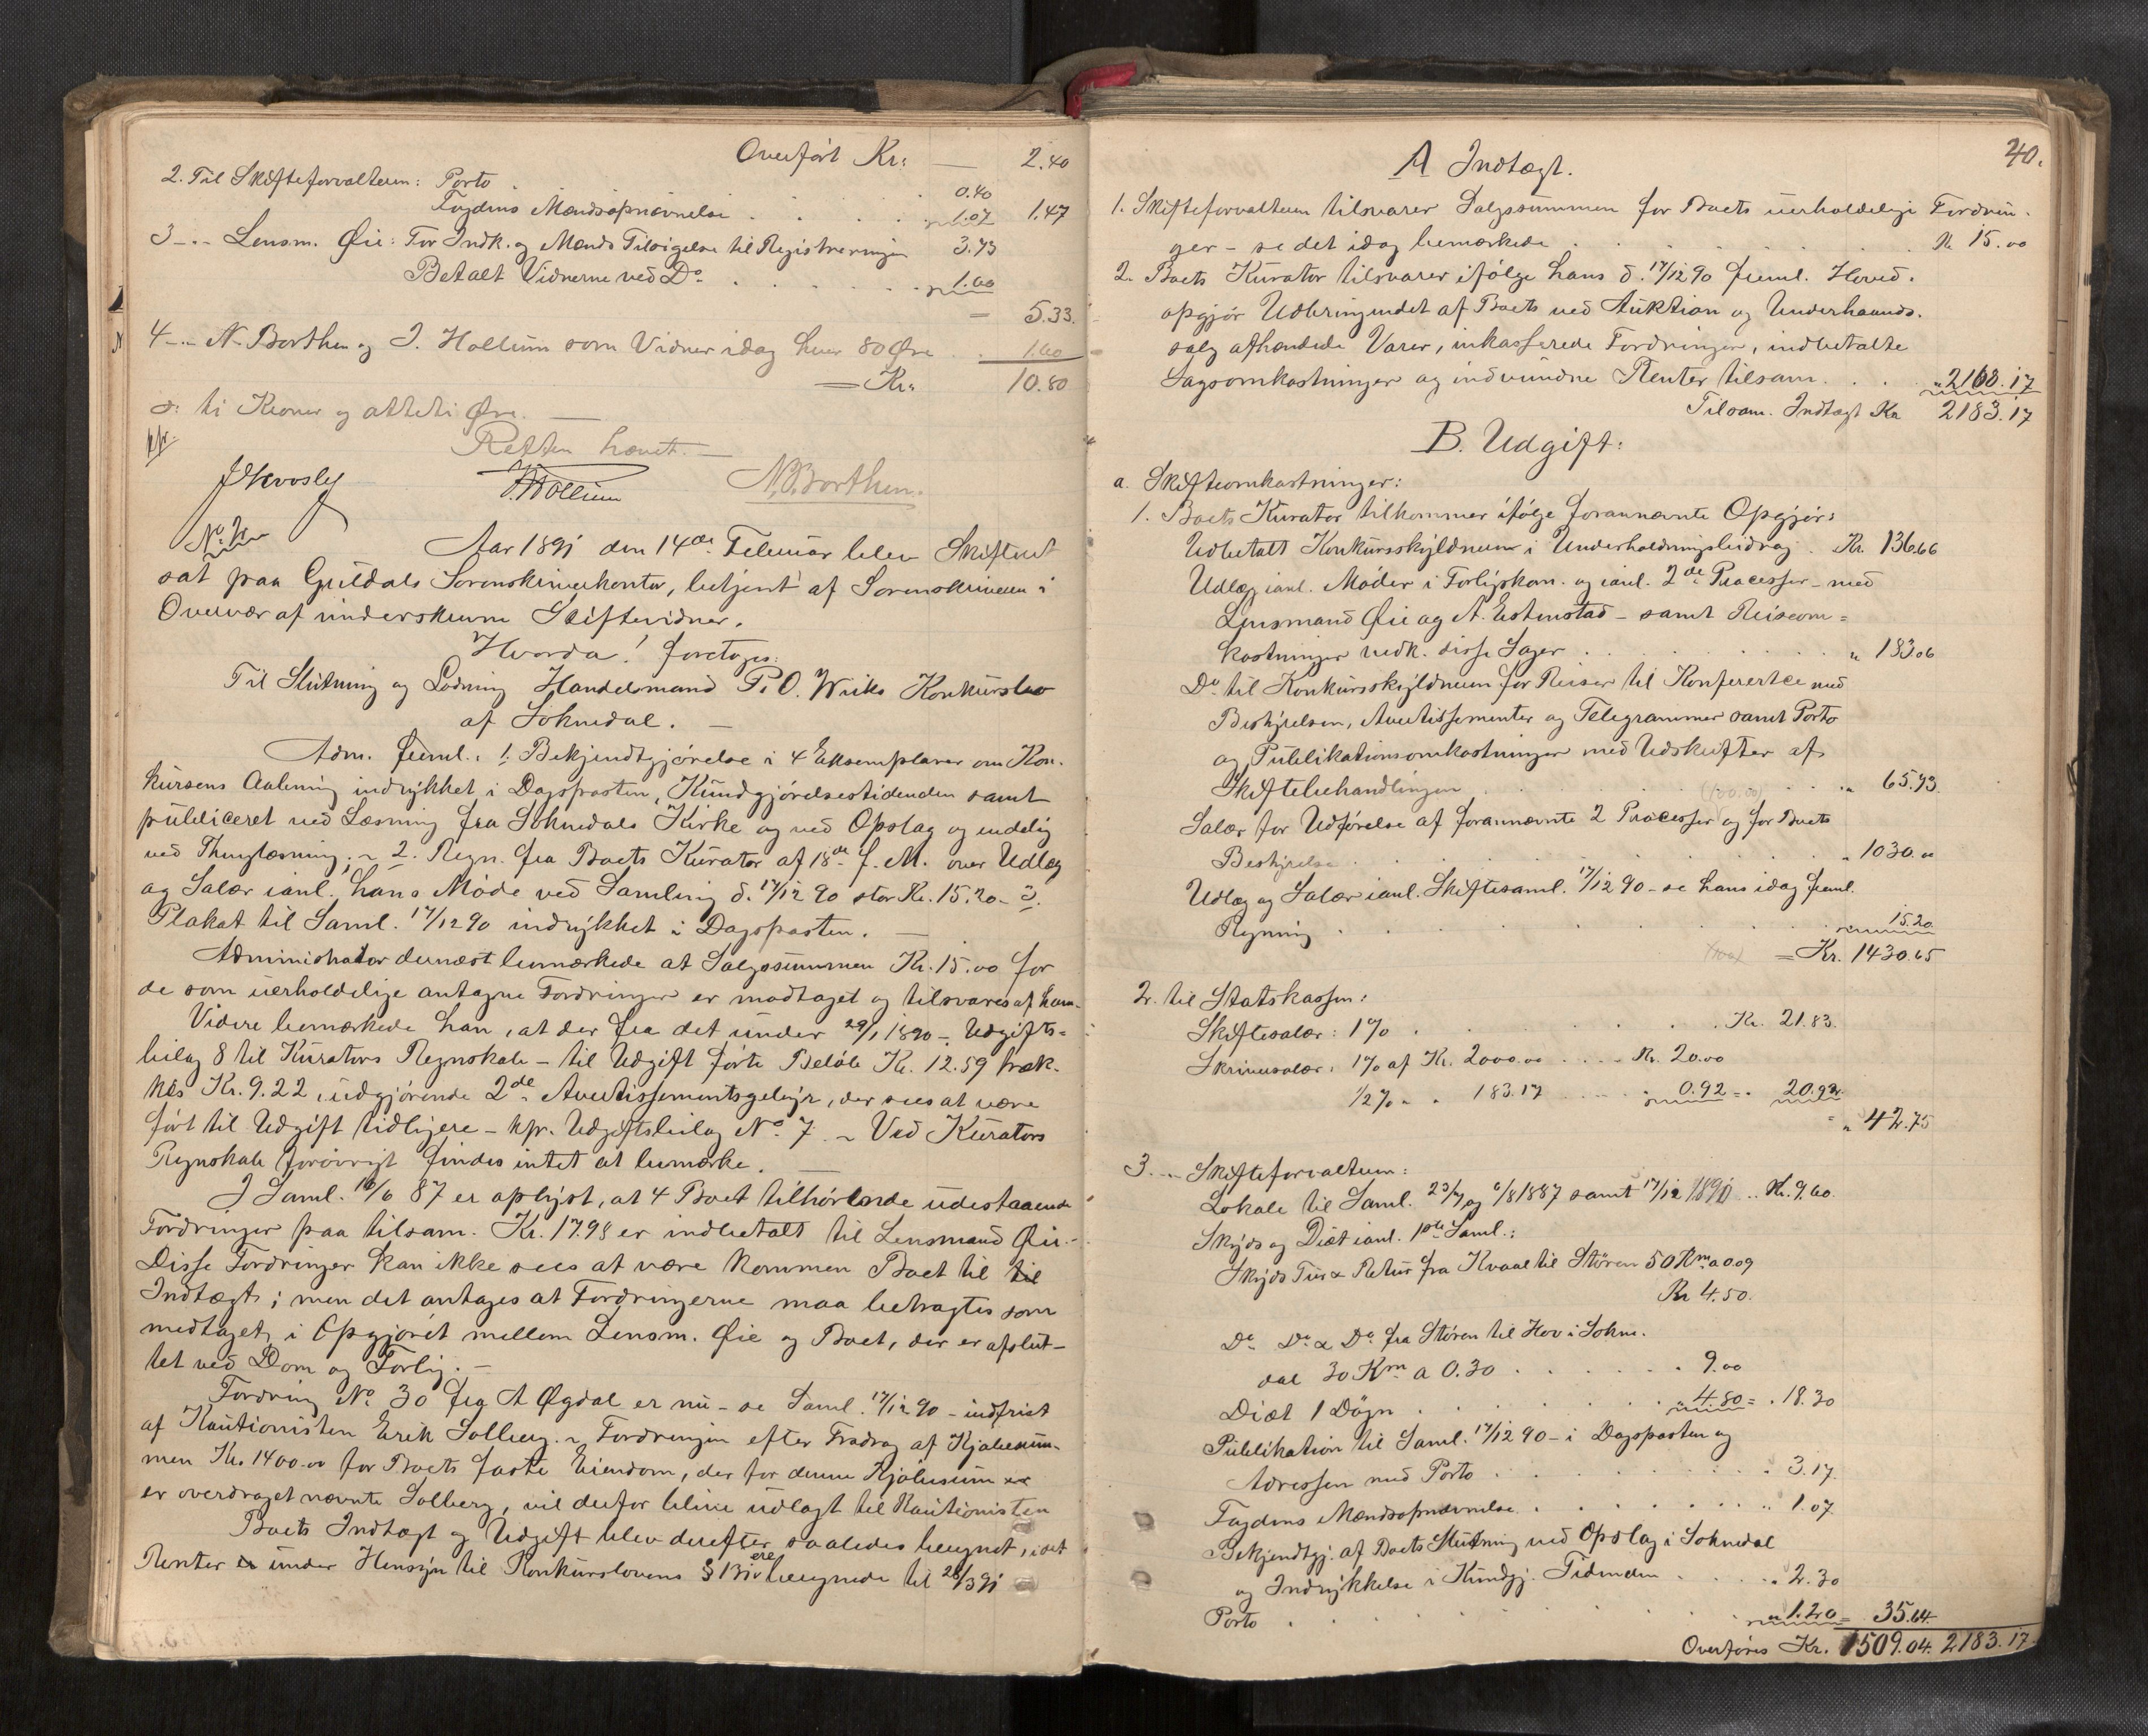 Overført Kr: — 2.40
2. Til Skifteforvalteren: Porto . 0.40
Fogdens Mændsopnævnelse . . . . " 1.07 1.47
3 -"- Lensm. Øie: For Indk. og Mænds Tilsigelse til Registreringen 3.73
Betalt Vidnerne ved Do. . . . . . " 1.60
— 5.33.
4 -"- N. Borthen og J. Hollum som Vidner idag hver 80 Øre . . 1.60
= Kr. 10.80
o: ti Kroner og otteti Øre. —
Retten hævet. —
J. Hollum N. Borthen.
No. 2
Aar 1891 den 14de Februar blev Skifteret
sat paa Guldals Sorenskriverkontor, betjent af Sorenskriveren i
Overvær af underskrevne Skiftevidner.
Hvorda! foretoges:
Til Slutning og Lodning Handelsmand P. O. Wiiks Konkursbo
af Soknedal. —
Adm. freml.: 1. Bekjendtgjørelse i 4 Eksemplarer om Kon-
kursens Aabning indrykket i Dagsposten, Kundgjørelsestidenden samt
publiceret ved Læsning fra Soknedals Kirke og ved Opslag og endelig
ved Thinglæsning; ~ 2. Regn. fra Boets Kurator af 18de f. M. over Udlæg
og Salær ianl. hans Møde ved Samling d. 17/12 90 stor Kr. 15.20 - 3.
Plakat til Saml. 17/12 90 indrykket i Dagsposten. —
Administrator dernæst bemærkede at Salgssummen Kr. 15.00 for
de som uerholdelige antagne Fordringer er modtaget og tilsvares af ham.
Videre bemærkede han, at der fra det under 29/1 1890 - Udgifts-
bilag 8 til Kurators Regnskab - til Udgift førte Beløb Kr. 12.59 træk-
kes Kr. 9.22, udgjørende 2de Avertissementsgebyr, der sees at være
ført til Udgift tidligere - kfr. Udgiftsbilag No. 7. ~ Ved Kurators
Regnskab forøvrigt findes intet at bemærke. —
I Saml. 16/6 87 er oplyst, at 4 Boet tilhørende udestaaende
Fordringer paa tilsam. Kr. 17.98 er indbetalt til Lensmand Øie.-
Disse Fordringer kan ikke sees at være kommen Boet til til
Indtægt; men det antages at Fordringerne maa betragtes som
medtaget i Opgjøret mellem Lensm. Øie og Boet, der er afslut-
tet ved Dom og Forlig. —
Fordring No. 30 fra A Øgdal er nu - se Saml. 17/12 90 - indfriet
af Kautionisten Erik Solberg. ~ Fordringen efter Fradrag af Kjøbesum-
men Kr. 1400.00 for Boets faste Eiendom, der for denne Kjøbesum er
er overdraget nævnte Solberg, vil derfor blive udlagt til Kautionisten
Boets Indtægt og Udgift blev derefter saaledes beregnet, idet
Renter er under Hensyn til Konkurslovens § 131 ere beregnede til 28/3 91
40.
A Indtægt.
1. Skifteforvalteren tilsvarer Salgssummen for Boets uerholdelige Fordrin-
ger - se det idag bemærkede . . . . . . Kr. 15.00
2. Boets Kurator tilsvarer ifølge hans d. 17/12 90 freml. Hoved-
opgjør Udbringendet af Boets ved Auktion og Underhaands-
salg afhændede Varer, inkasserede Fordringer, indbetalte
Sagsomkostninger og indvundne Renter tilsam. . . . " 2168.17
Tilsam. Indtægt Kr. 2183.17
B. Udgift:
a. Skifteomkostninger:
1. Boets Kurator tilkommer ifølge forannævnte Opgjør:
Udbetalt Konkursskyldneren i Underholdningsbidrag . Kr. 136.66
Udlæg ianl. Møder i Forligskom. og ianl. 2de Processer - med
Lensmand Øie og A. Estenstad - samt Reiseom-
kostninger vedk. disse Sager . . . . . " 183.06
Do. til Konkursskyldneren for Reiser til Konferentse med
Bestyrelsen, Avertissementer og Telegrammer samt Porto
og Publikationsomkostninger med Udskrifter af
Skiftebehandlingen . . . (100.00) . . " 65.73
Salær for Udførelse af forannævnte 2 Processer og for Boets
Bestyrelse . . . . . . . " 1030.00
Udlæg og Salær ianl. Skiftesaml. 17/12 90 - se hans idag freml.
Regning . . . . . . . " 15.20
= Kr. 1430.65
2. til Statskassen:
Skiftesalær: 1% . . . . . . Kr. 21.83.
Skriversalær: 1% af Kr. 2000.00 . . . . Kr. 20.00
1/2% " " 183.17 . . . . " 0.92 = " 20.92
" 42.75
3. -"- Skifteforvalteren:
Lokale til Saml. 23/7 og 6/8 1887 samt 17/12 1890 .. Kr. 9.60
Skyds og Diæt ianl. 1ste Saml.:
Skyds Tur & Retur fra Kvaal til Støren 50 Km. a 0.09
Kr 4.50.
Do. Do. & Do. fra Støren til Hov i Sokne-
dal 30 Km a 0.30 . . . . . . 9.00
Diæt 1 Døgn . . . . . . " 4.80 = . 18.30
Publikation til Saml. 17/12 90 - i Dagsposten og
Adressen med Porto . . . . . . . 3.17
Fogdens Mændsopnævnelse . . . . . . " 1.07
Bekjendtgj. af Boets Slutning ved Opslag i Soknedal
og Indrykkelse i Kundgj. Tidenden . . . . " 2.30
Porto . . . . . . . " 1.20 = 35.64
Overføres Kr. 1509.04. 2183.17.